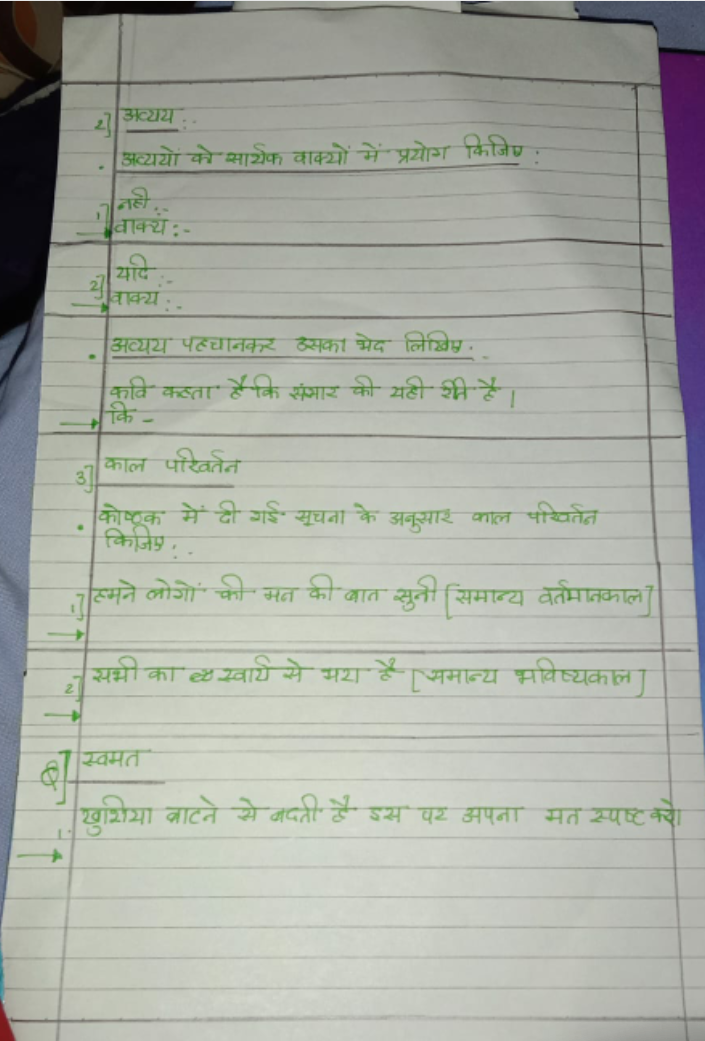 2] अव्यय :.
• अव्ययों को सार्थक वाक्यों में प्रयोग किजिए :
1] नही :-
→ वाक्य :-
2] यदि :-
→ वाक्य :-
• अव्यय पहचानकर उसका भेद लिखिए :
कवि कहता है कि संसार की यही रीत है।
→ कि -
3] काल परिवर्तन
• कोष्ठक में दी गई सूचना के अनुसार काल परिवर्तन
किजिए :.
1] हमने लोगों की मन की बात सुनी [समान्य वर्तमानकाल]
→
2] सभी का स्वार्थ से भरा है [समान्य भविष्यकाल]
→
Q] स्वमत
1. खुशीया बाटने से बढती है इस पर अपना मत स्पष्ट करो
→